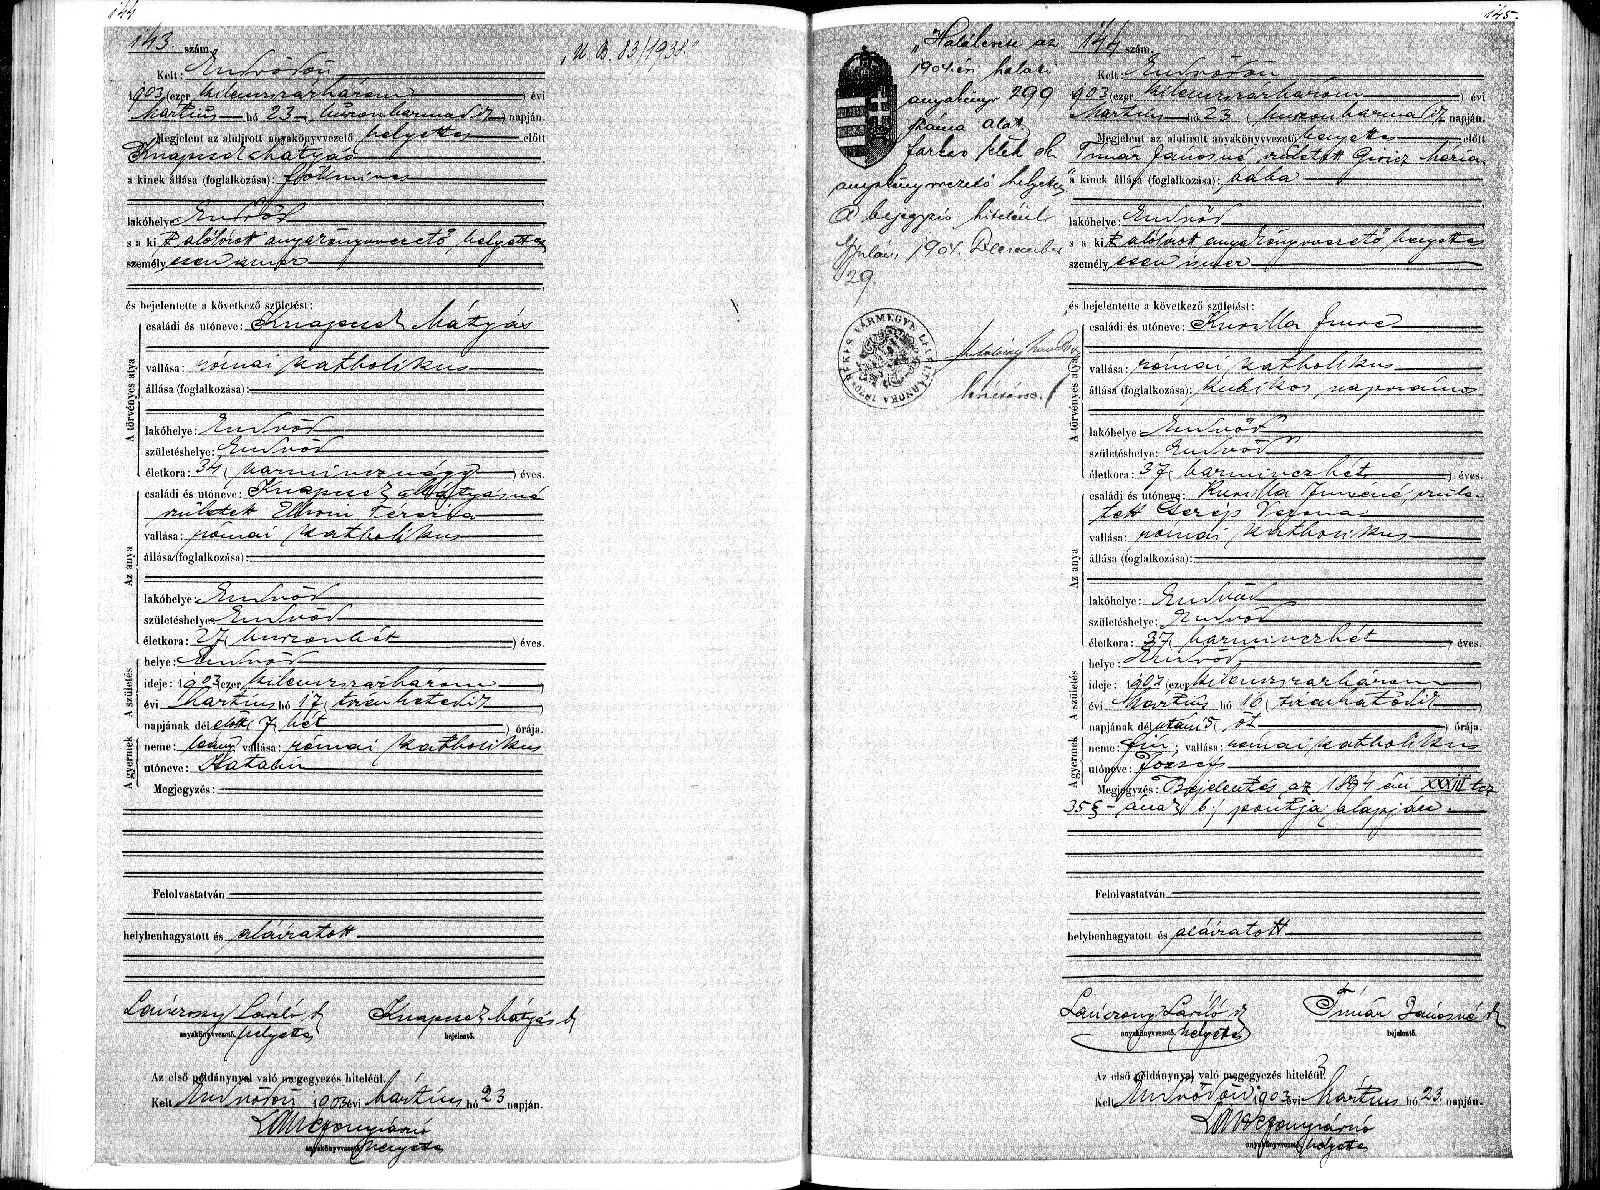 144
143 szám.
"U. B. 83/1938"
Kelt: Endrődön
1903 (ezer kilenczszázhárom ) évi
Martius hó 23 (huszonharmadik) napján.
Megjelent az alulirott anyakönyvvezető helyettes előtt
Knapcsek Mátyás
a kinek állása (foglalkozása): földmives
lakóhelye Endrőd
s a ki t alólírott anyakönyvvezető helyettes
személyesen ismer
és bejelentette a következő születést:
A törvényes atya
családi és utóneve: Knapcsek Mátyás
vallása: római katholikus
állása (foglalkozása):
lakóhelye: Endrőd
születéshelye: Endrőd
életkora: 34 ( harmincznégy ) éves.
Az anya
családi és utóneve: Knapcsek Mátyásné
született Terézia
vallása: római katholikus
állása (foglalkozása):
lakóhelye: Endrőd
születéshelye Endrőd
életkora: 27 ( huszonhét ) éves.
A születés
helye: Endrőd
ideje: 1903 (ezer kilenczszázhárom )
évi Martius hó 17 ( tizenhetedik )
napjának dél előtt 7 ( hét ) órája.
A gyermek
neme: leány; vallása: római katholikus
utóneve: Katalin
Megjegyzés:
Felolvastatván
helybenhagyatott és aláiratott
László s.k. Knapcsek Mátyás s.k.
anyakönyvvezető helyettes bejelentő.
Az első példánynyal való megegyezés hiteléül.
Kelt Endrődön 1903 évi Mártius hó 23 napján.
anyakönyvvezető helyettes
145.
"Halálesete az
1904. évi halálozási
anyakönyv 299
száma alatt
Farkas
anyakönyvvezető helyettes"
A bejegyzés hiteléül
Gyulán, 1904. December
29.
BÉKÉS VÁRMEGYE
144 szám.
Kelt Endrődön
1903 (ezer kilenczszázhárom ) évi
Martius hó 23 ( huszonharmadik) napján.
Megjelent az alulirott anyakönyvvezető helyettes előtt
Timár Jánosné, született Giricz Mária
a kinek állása (foglalkozása): bába
lakóhelye: Endrőd
s a ki t alólírott anyakönyvvezető helyettes
személyesen ismer
és bejelentette a következő születést:
A törvényes atya
családi és utóneve: Kurilla Imre
vallása: római katholikus
állása (foglalkozása): kubikos napszámos
lakóhelye Endrőd
születéshelye: Endrőd
életkora: 37 ( harminczhét ) éves.
Az anya
családi és utóneve: Kurilla Imréné, szüle-
tett Szerép Verona
vallása: római katholikus
állása (foglalkozása):
lakóhelye: Endrőd
születéshelye: Endrőd
életkora: 37 ( harminczhét ) éves.
A születés
helye: Endrőd
ideje: 1903 (ezer kilenczszázhárom )
évi Martius hó 16 ( tizenhatodik )
napjának dél után 5 ( öt ) órája.
A gyermek
neme: fiu; vallása: római katholikus
utóneve: József
Megjegyzés: Bejelentés az 1894 évi XXXIII tcz
35 § - ának b/ pontja alapján
Felolvastatván
helybenhagyatott és aláiratott
László s.k. Timár Jánosné s.k.
anyakönyvvezető helyettes bejelentő.
Az első példánynyal való megegyezés hiteléül.
Kelt Endrődön 1903 évi Mártius hó 23. napján.
anyakönyvvezető helyettes